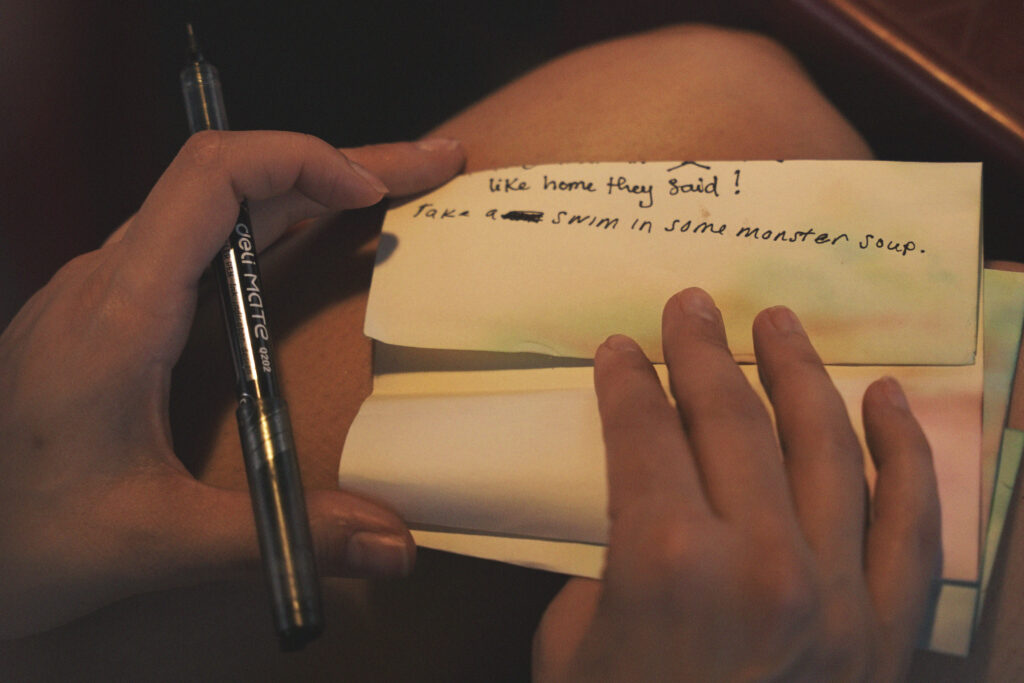 like home they said!
Take a swim in some monster soup.
deli MATE 0202